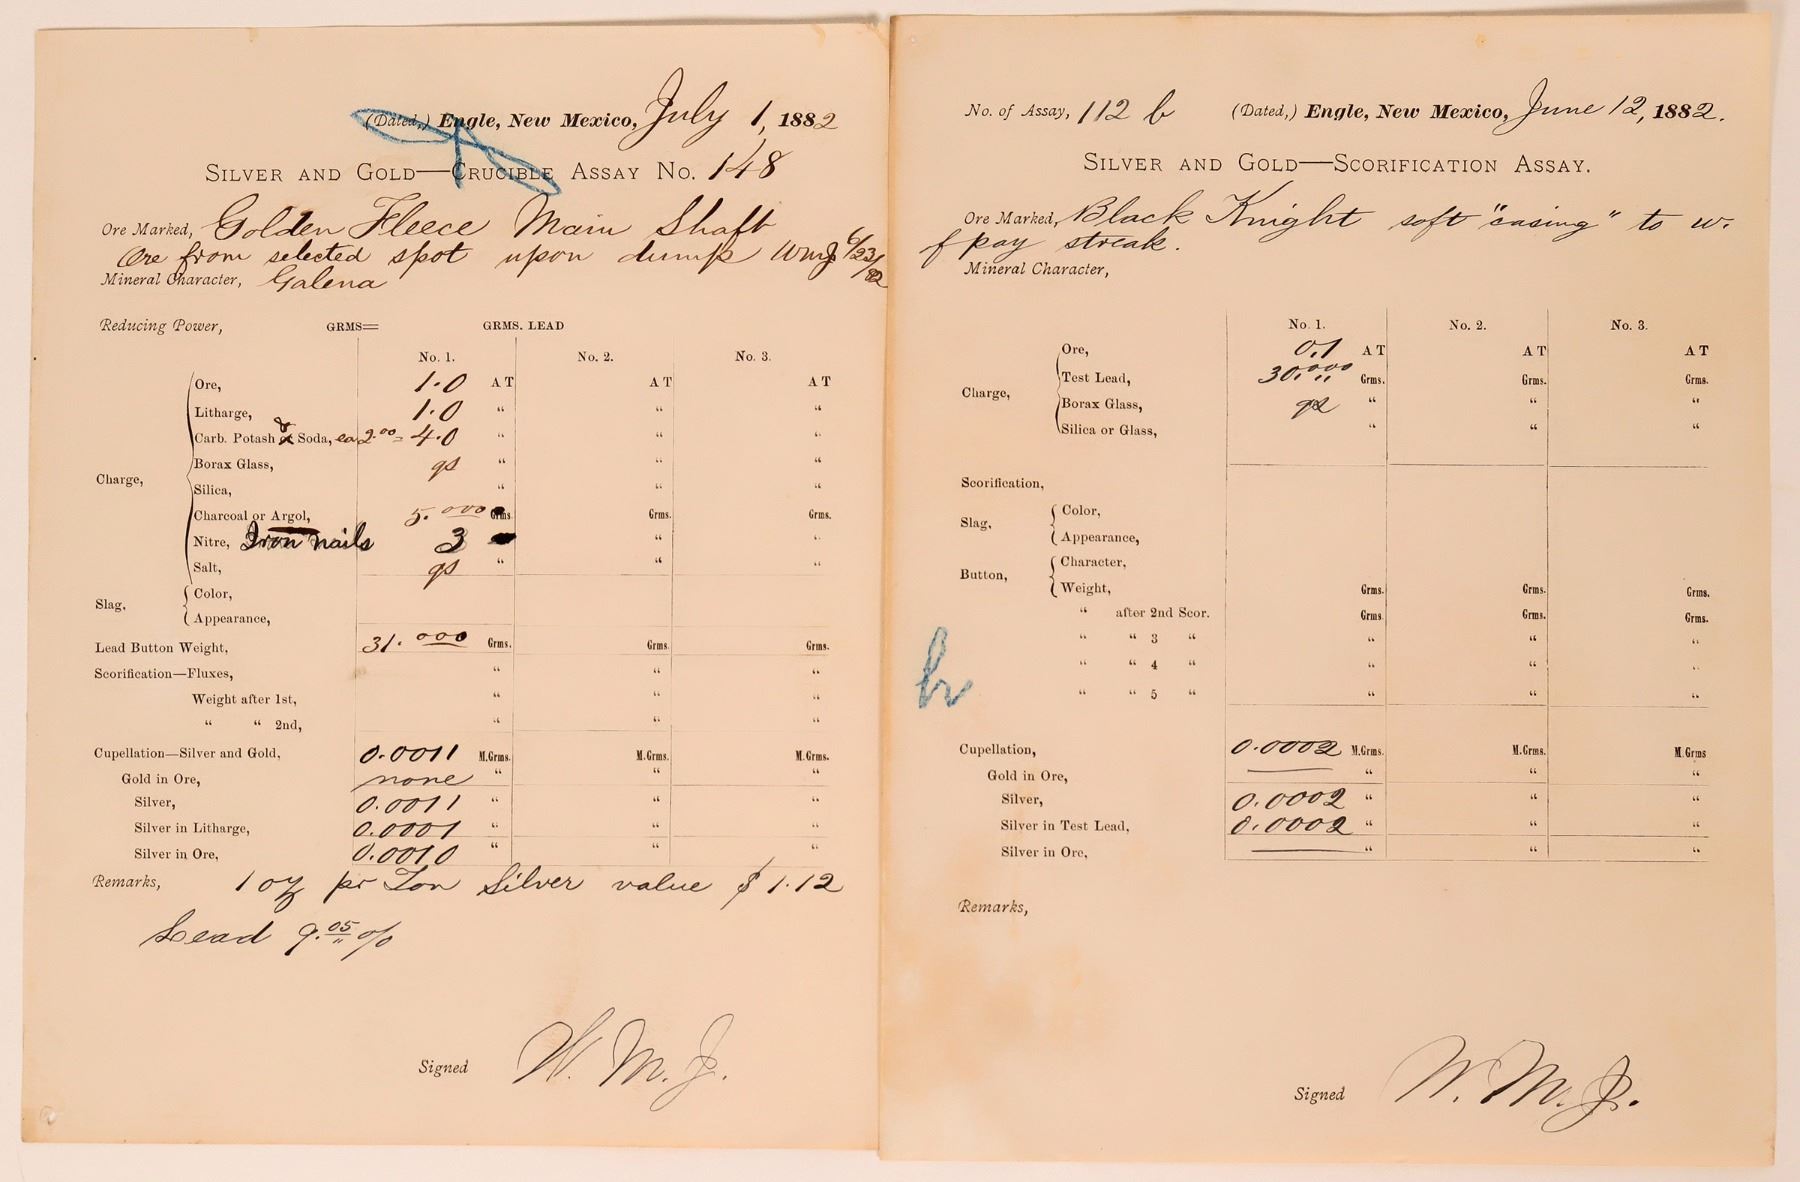 (Dated,) Engle, New Mexico, July 1, 1882
Silver and Gold—Crucible Assay No. 148
Ore Marked, Golden Fleece Main Shaft
Ore from selected spot upon dump WMJ 6/23/82
Mineral Character, Galena
Reducing Power, GRMS= GRMS. LEAD
No. 1. No. 2. No. 3.
Charge,
Ore, 1.0 A T A T A T
Litharge, 1.0 “ “ “
Carb. Potash & Soda, ea 2.00 = 4.0 “ “ “
Borax Glass, qs “ “ “
Silica, “ “ “
Charcoal or Argol, 5.000 Grms. Grms. Grms.
Nitre, Iron nails 3 “ “
Salt, qs “ “ “
Slag,
Color,
Appearance,
Lead Button Weight, 31.000 Grms. Grms. Grms.
Scorification—Fluxes, “ “ “
Weight after 1st, “ “ “
“ “ 2nd, “ “ “
Cupellation—Silver and Gold, 0.0011 M.Grms. M.Grms. M.Grms.
Gold in Ore, none “ “ “
Silver, 0.0011 “ “ “
Silver in Litharge, 0.0001 “ “ “
Silver in Ore, 0.0010 “ “ “
Remarks, 1 oz pr Ton Silver value $1.12
Lead 9.05 %
Signed W. M. J.
No. of Assay, 112 b (Dated,) Engle, New Mexico, June 12, 1882.
Silver and Gold—Scorification Assay.
Ore Marked, Black Knight soft "casing" to w.
of pay streak.
Mineral Character,
No. 1. No. 2. No. 3.
Charge,
Ore, 0.1 A T A T A T
Test Lead, 30.000 Grms. Grms. Grms.
Borax Glass, qs “ “ “
Silica or Glass, “ “ “
Scorification,
Slag,
Color,
Appearance,
Button,
Character,
Weight, Grms. Grms. Grms.
“ after 2nd Scor. Grms. Grms. Grms.
“ “ 3 “ “ “ “
“ “ 4 “ “ “ “
“ “ 5 “ “ “ “
Cupellation, 0.0002 M.Grms. M.Grms. M.Grms
Gold in Ore, “ “ “
Silver, 0.0002 “ “ “
Silver in Test Lead, 0.0002 “ “ “
Silver in Ore, “ “ “
Remarks,
Signed W. M. J.